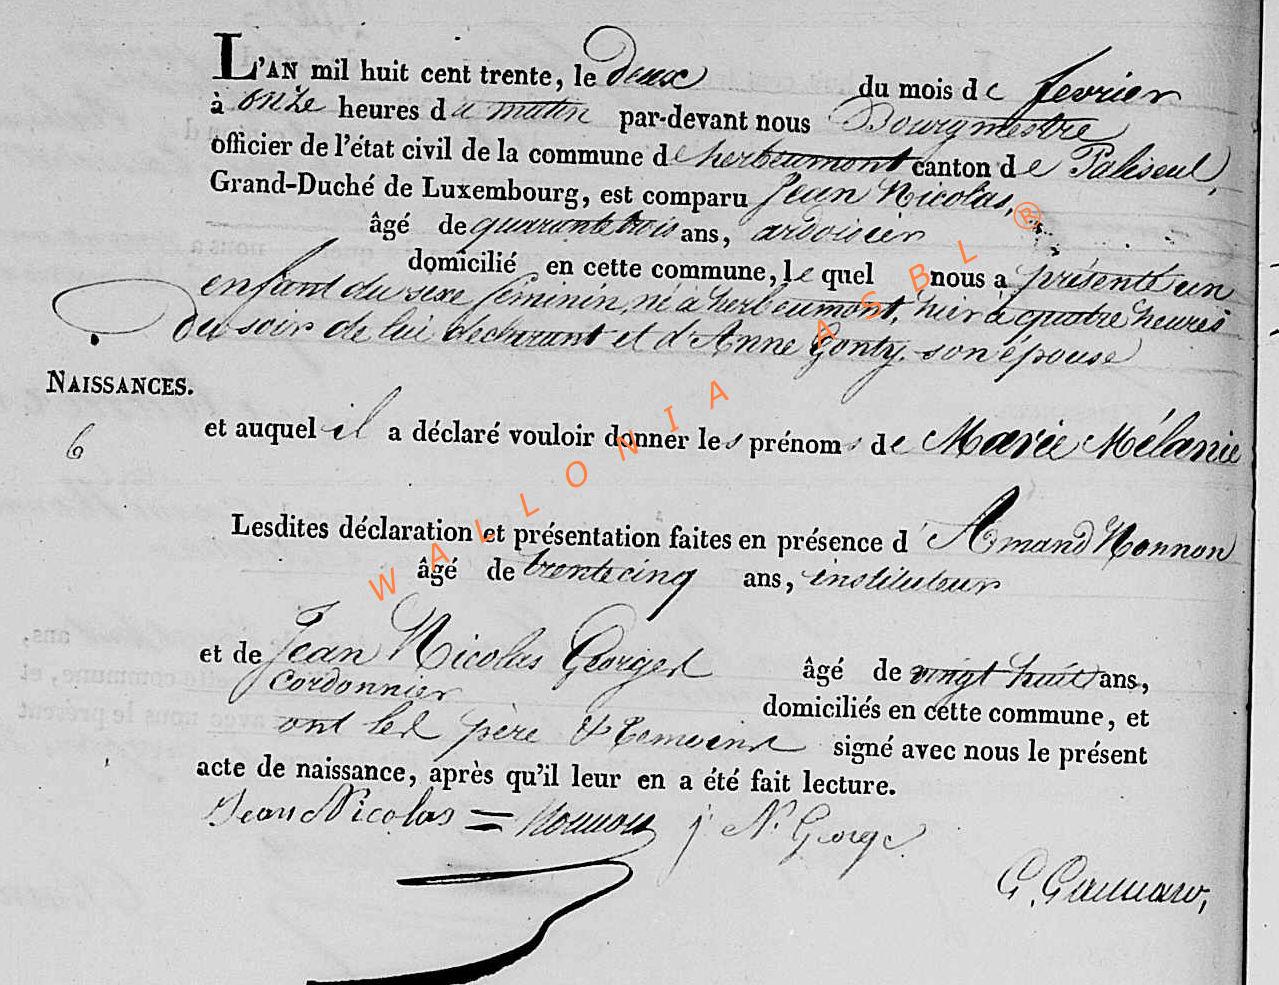 L'AN mil huit cent trente, le deux du mois de fevrier
à onze heures du matin par-devant nous Bourgmestre
officier de l'état civil de la commune de herbeumont canton de Paliseul,
Grand-Duché de Luxembourg, est comparu Jean Nicolas,
âgé de quarante trois ans, ardoisier
domicilié en cette commune, le quel nous a présenté un
enfant du sexe féminin, né à herbeumont, hier à quatre heures
du soir de lui déclarant et d'Anne Gonty, son épouse
NAISSANCES.
6
et auquel il a déclaré vouloir donner les prénoms de Marie Mélanie
Lesdites déclaration et présentation faites en présence d'Amand Nonnon
âgé de trente cinq ans, instituteur
et de Jean Nicolas Georges âgé de vingt huit ans,
cordonnier domiciliés en cette commune, et
ont les père & temoins signé avec nous le présent
acte de naissance, après qu'il leur en a été fait lecture.
Jean Nicolas = Nonnon j N. George
WALLONIA ASBL ®